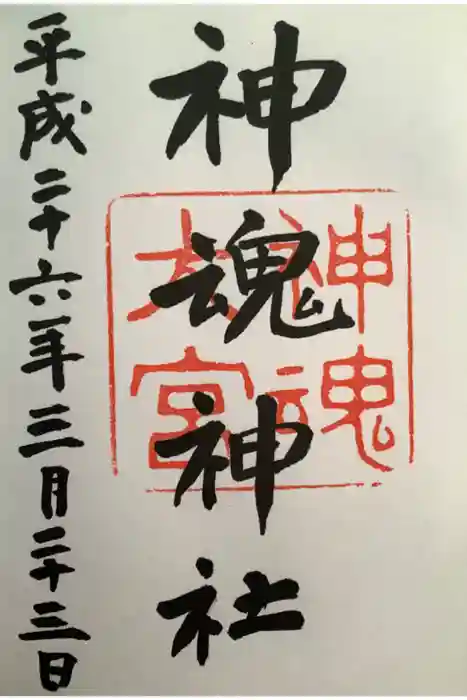 神魂神社
神魂
大宮
平成二十六年三月二十三日